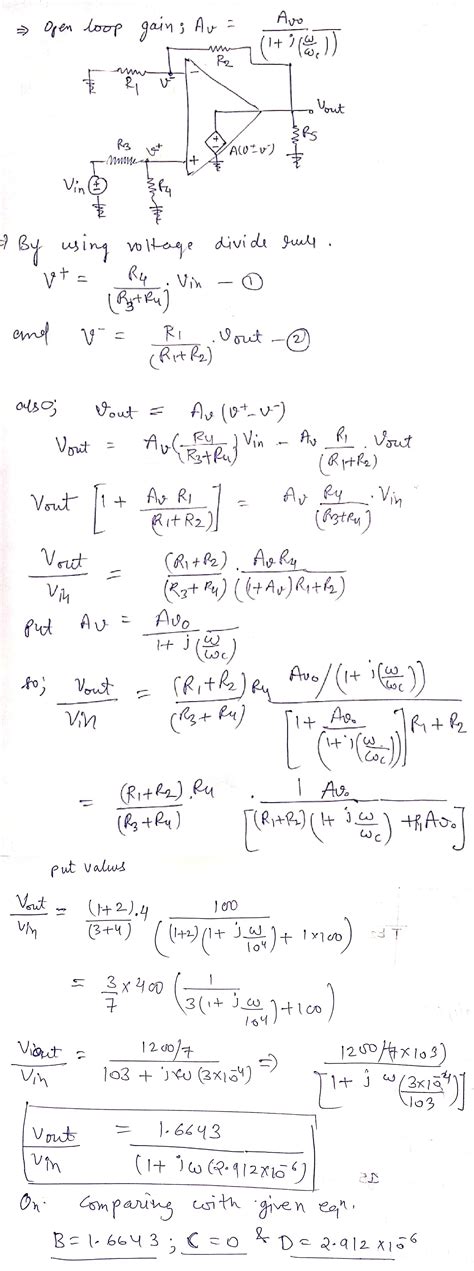 ⇒ Open loop gain; Av = Avo / (1 + j(ω/ωc))
R2
R1
v-
−
Vout
R5
A(v+-v-)
R3
v+
+
Vin
R4
⇒ By using voltage divide rule.
v+ = R4/(R3+R4) . Vin — ①
and v- = R1/(R1+R2) . Vout — ②
also; Vout = Av (v+ - v-)
Vout = Av (R4/(R3+R4)) Vin - Av R1/(R1+R2) . Vout
Vout [1 + Av R1/(R1+R2)] = Av R4/(R3+R4) . Vin
Vout/Vin = (R1+R2)/(R3+R4) . AvR4/((1+Av)R1+R2)
put Av = Avo/(1+j(ω/ωc))
so; Vout/Vin = (R1+R2)R4/(R3+R4) Avo/(1+j(ω/ωc)) / [1 + Avo/(1+j(ω/ωc))]R1+R2
= (R1+R2).R4/(R3+R4) . 1 Avo/[(R1+R2)(1+jω/ωc)+R1Avo]
put values
Vout/Vin = (1+2).4/(3+4) 100/((1+2)(1+jω/10^4)+1×100)
= 3/7 × 400 (1/(3(1+jω/10^4)+100))
Vout/Vin = 1200/7 / (103 + jω(3×10^-4)) ⇒ 1200/(7×103) / [1 + jω(3×10^-4/103)]
Vout/Vin = 1.6643/(1+jω(2.912×10^-6))
On comparing with given eqn.
B = 1.6643 ; C = 0 & D = 2.912 × 10^-6